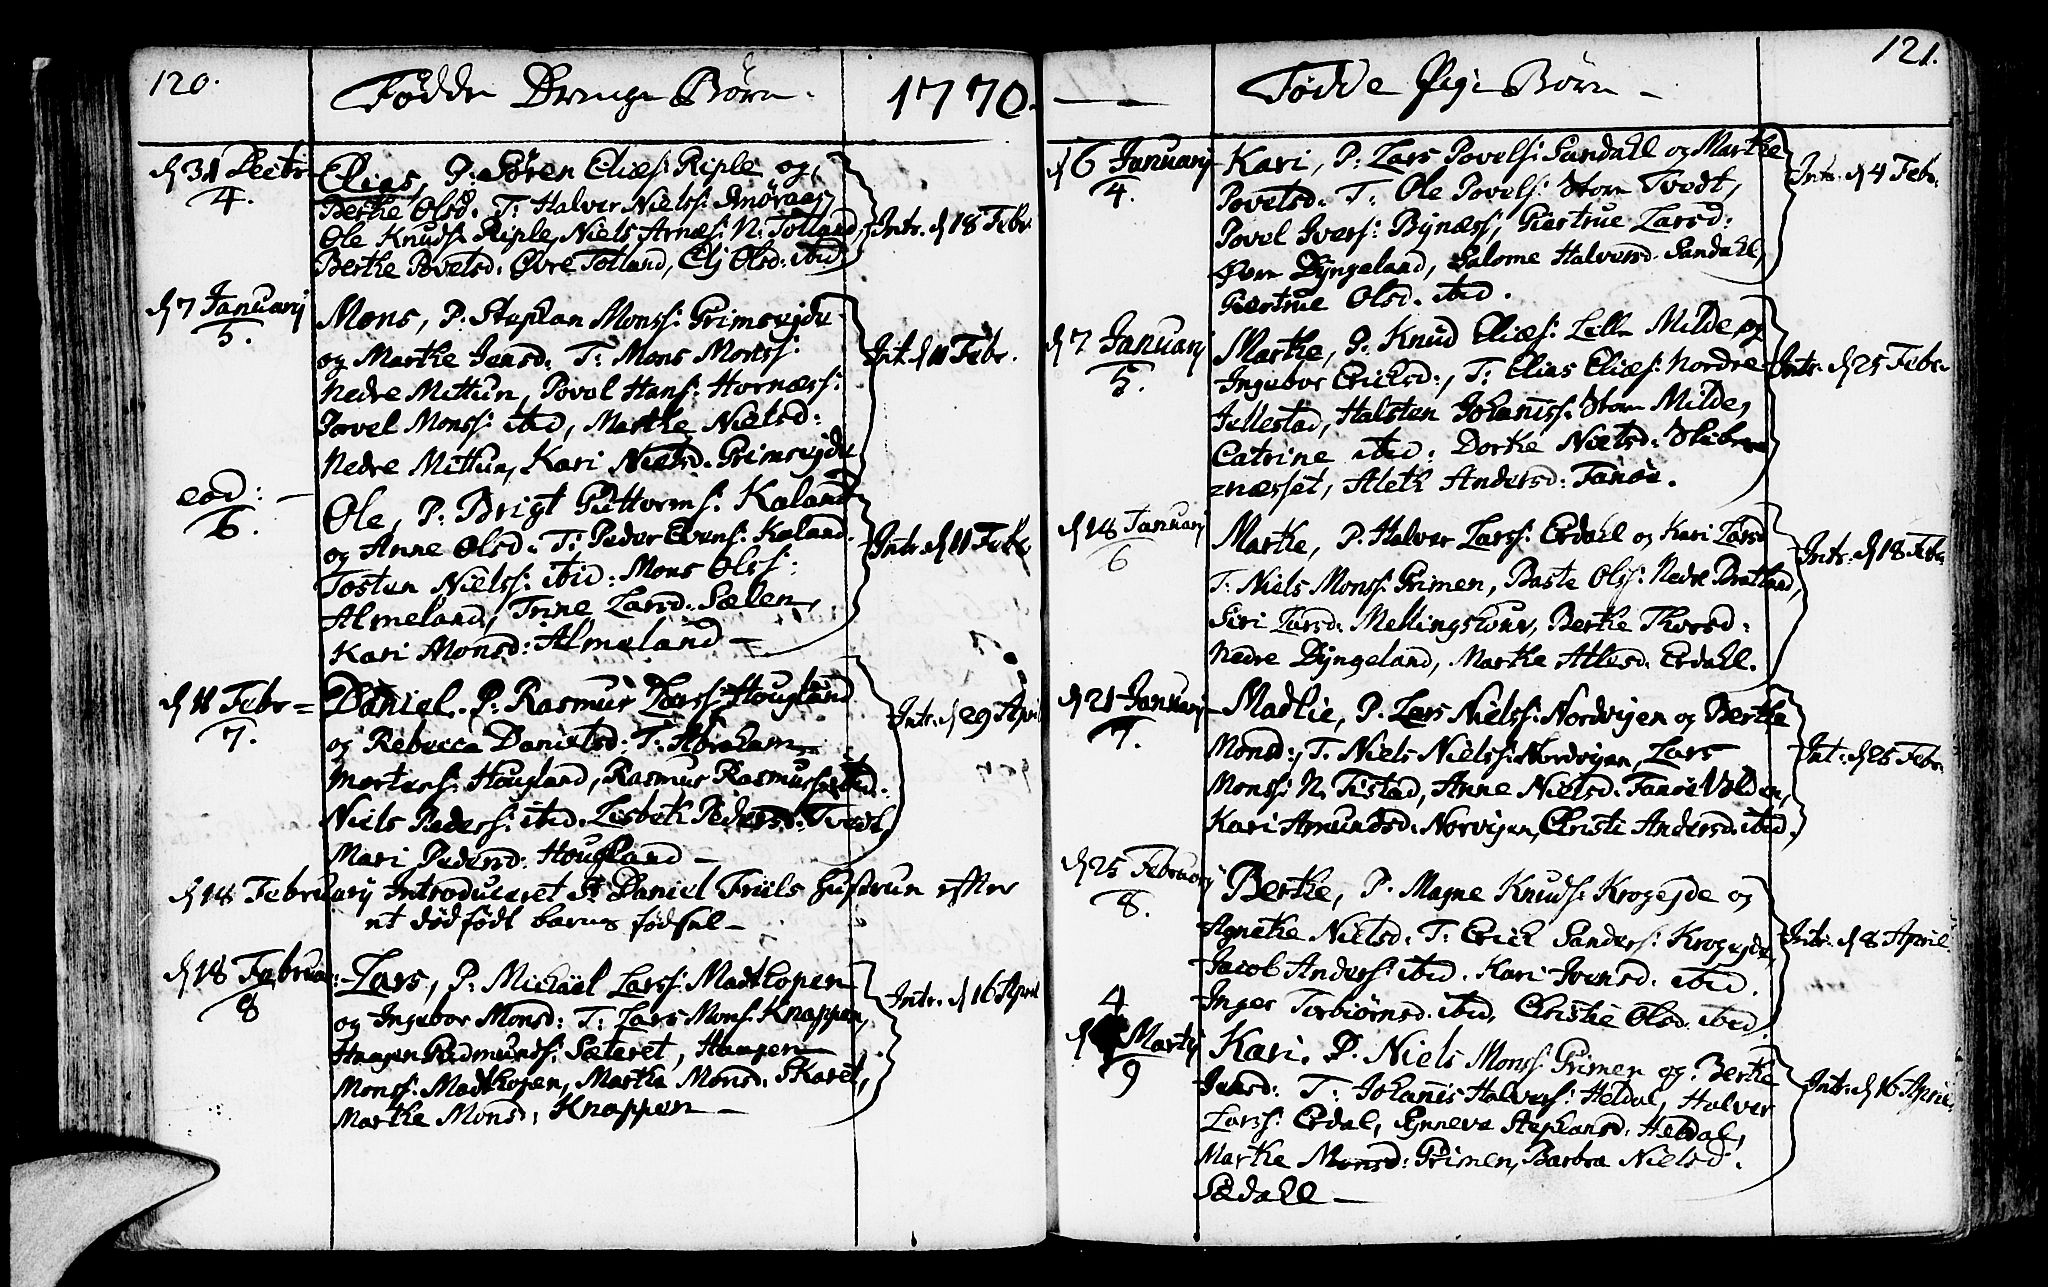 120.
Fødde Drenge Børn.
1770.
d 31 Decbr
4.
Elias, P: Søren Eliæs: Riple og
Berthe Olsd. T: Halver Nielss:
Ole Knuds: Riple, Niels Arnæs: N: Totland,
Berthe Povelsd: Øvre Totland, Eli Olsd: ibid
Intr. d 18 Febr.
d 7 January
5.
Mons, P: Stephan Monss: Grimseyde
og Marthe Jensd: T: Mons Monss:
Nedre Mittun, Povel Hans: Hornæss:
Povel Monss: ibid, Marthe Nielsd:
Nedre Mittun, Kari Nielsd. Grimseyde
Int. d 11 Febr.
eod:
6.
Ole, P: Brigt Guttorms: Kaland
og Anne Olsd. T: Peder Evens: Kaland.
Tosten Nielss: ibid: Mons Olss:
Almeland, Trine Larsd. Sælen,
Kari Monsd: Almeland –
Intr. d 11 Febr.
d 11 Febr =
7.
Daniel. P: Rasmus Larss: Hougland
og Rebecca Danielsd: T: Abraham
Mortens: Hougland, Rasmus Rasmuss: ibid.
Niels Peders: ibid. Lisbeth Pedersd. Tvedt,
Mari Pedersd. Hougland –
Intr. d 29 April
d 18 February Introduceret Sr Daniel Friels Hustrue efter
et dødfødt barns fødsel –
d 18 Februar:
8
Lars, P: Michael Larss: Madthopen
og Ingebor Monsd: T: Lars Mons: Knappen,
Haagen Redmunds: Sæteret, Haagen
Monss: Madthopen, Marthe Monsd. Skaret,
Marthe Monsd: Knappen –
Intr. d 16 April
121.
Fødde Pige Børn –
d 6 January
4.
Kari, P: Lars Povels: Sandahl og Marthe
Povelsd. T: Ole Povels: Store Tvedt,
Povel Ivers: Bynæss, Giertrue Larsd:
Øvre Dyngeland, Salome Halversd. Sandahl,
Giertrue Olsd. ibid.
Intr. d 4 Febr.
d 7 January
5.
Marthe, P: Knud Eliæs: Lille Milde, og
Ingebor Ericksd:, T: Elias Eliæs: Nordre
Jullestad, Halsten Johanïss: Store Milde,
Catrine ibid: Dorthe Nielsd:
næsset, Aleth Andersd: Fanøe.
Intr. d 25 Febr.
d 18 January
6
Marthe, P. Halver Larss: Erdahl og Kari Larsd
T: Niels Monss: Grimen, Baste Olss: Nedre Bratland,
Siri Larsd: Mellingstoune, Berthe Thorsd:
Nedre Dyngeland, Marthe Atlesd: Erdahl.
Intr. d 18 Febr.
d 21 January
7.
Madlie, P. Lars Nielss: Nordvigen og Berthe
Monsd:, T. Niels Nielss: Nordvigen, Lars
Monss: N. Titstad, Anne Nielsd. Fanøe Volden,
Kari Amundsd: Norvigen, Christi Andersd. ibid.
Int: d 25 Febr.
d 25 February
8.
Berthe, P. Magne Knuds: Krogejde og
Agnethe Nielsd: T: Erick Sanders: Krogejde,
Jacob Anders: ibid. Kari Ivensd. ibid.
Inger Torbiørnsd. ibid, Christie Olsd. ibid
Intr. d 8 April
4
d Marty
9
Kari. P. Niels Monss: Grimen og Berthe
Jensd: T: Johanïs Halvers: Heldal, Halver
Larss: Erdal, Synneva Stephansd: Heldal,
Marthe Monsd: Grimen, Barbra Nielsd.
Sædahl –
Intr. d 16 April.